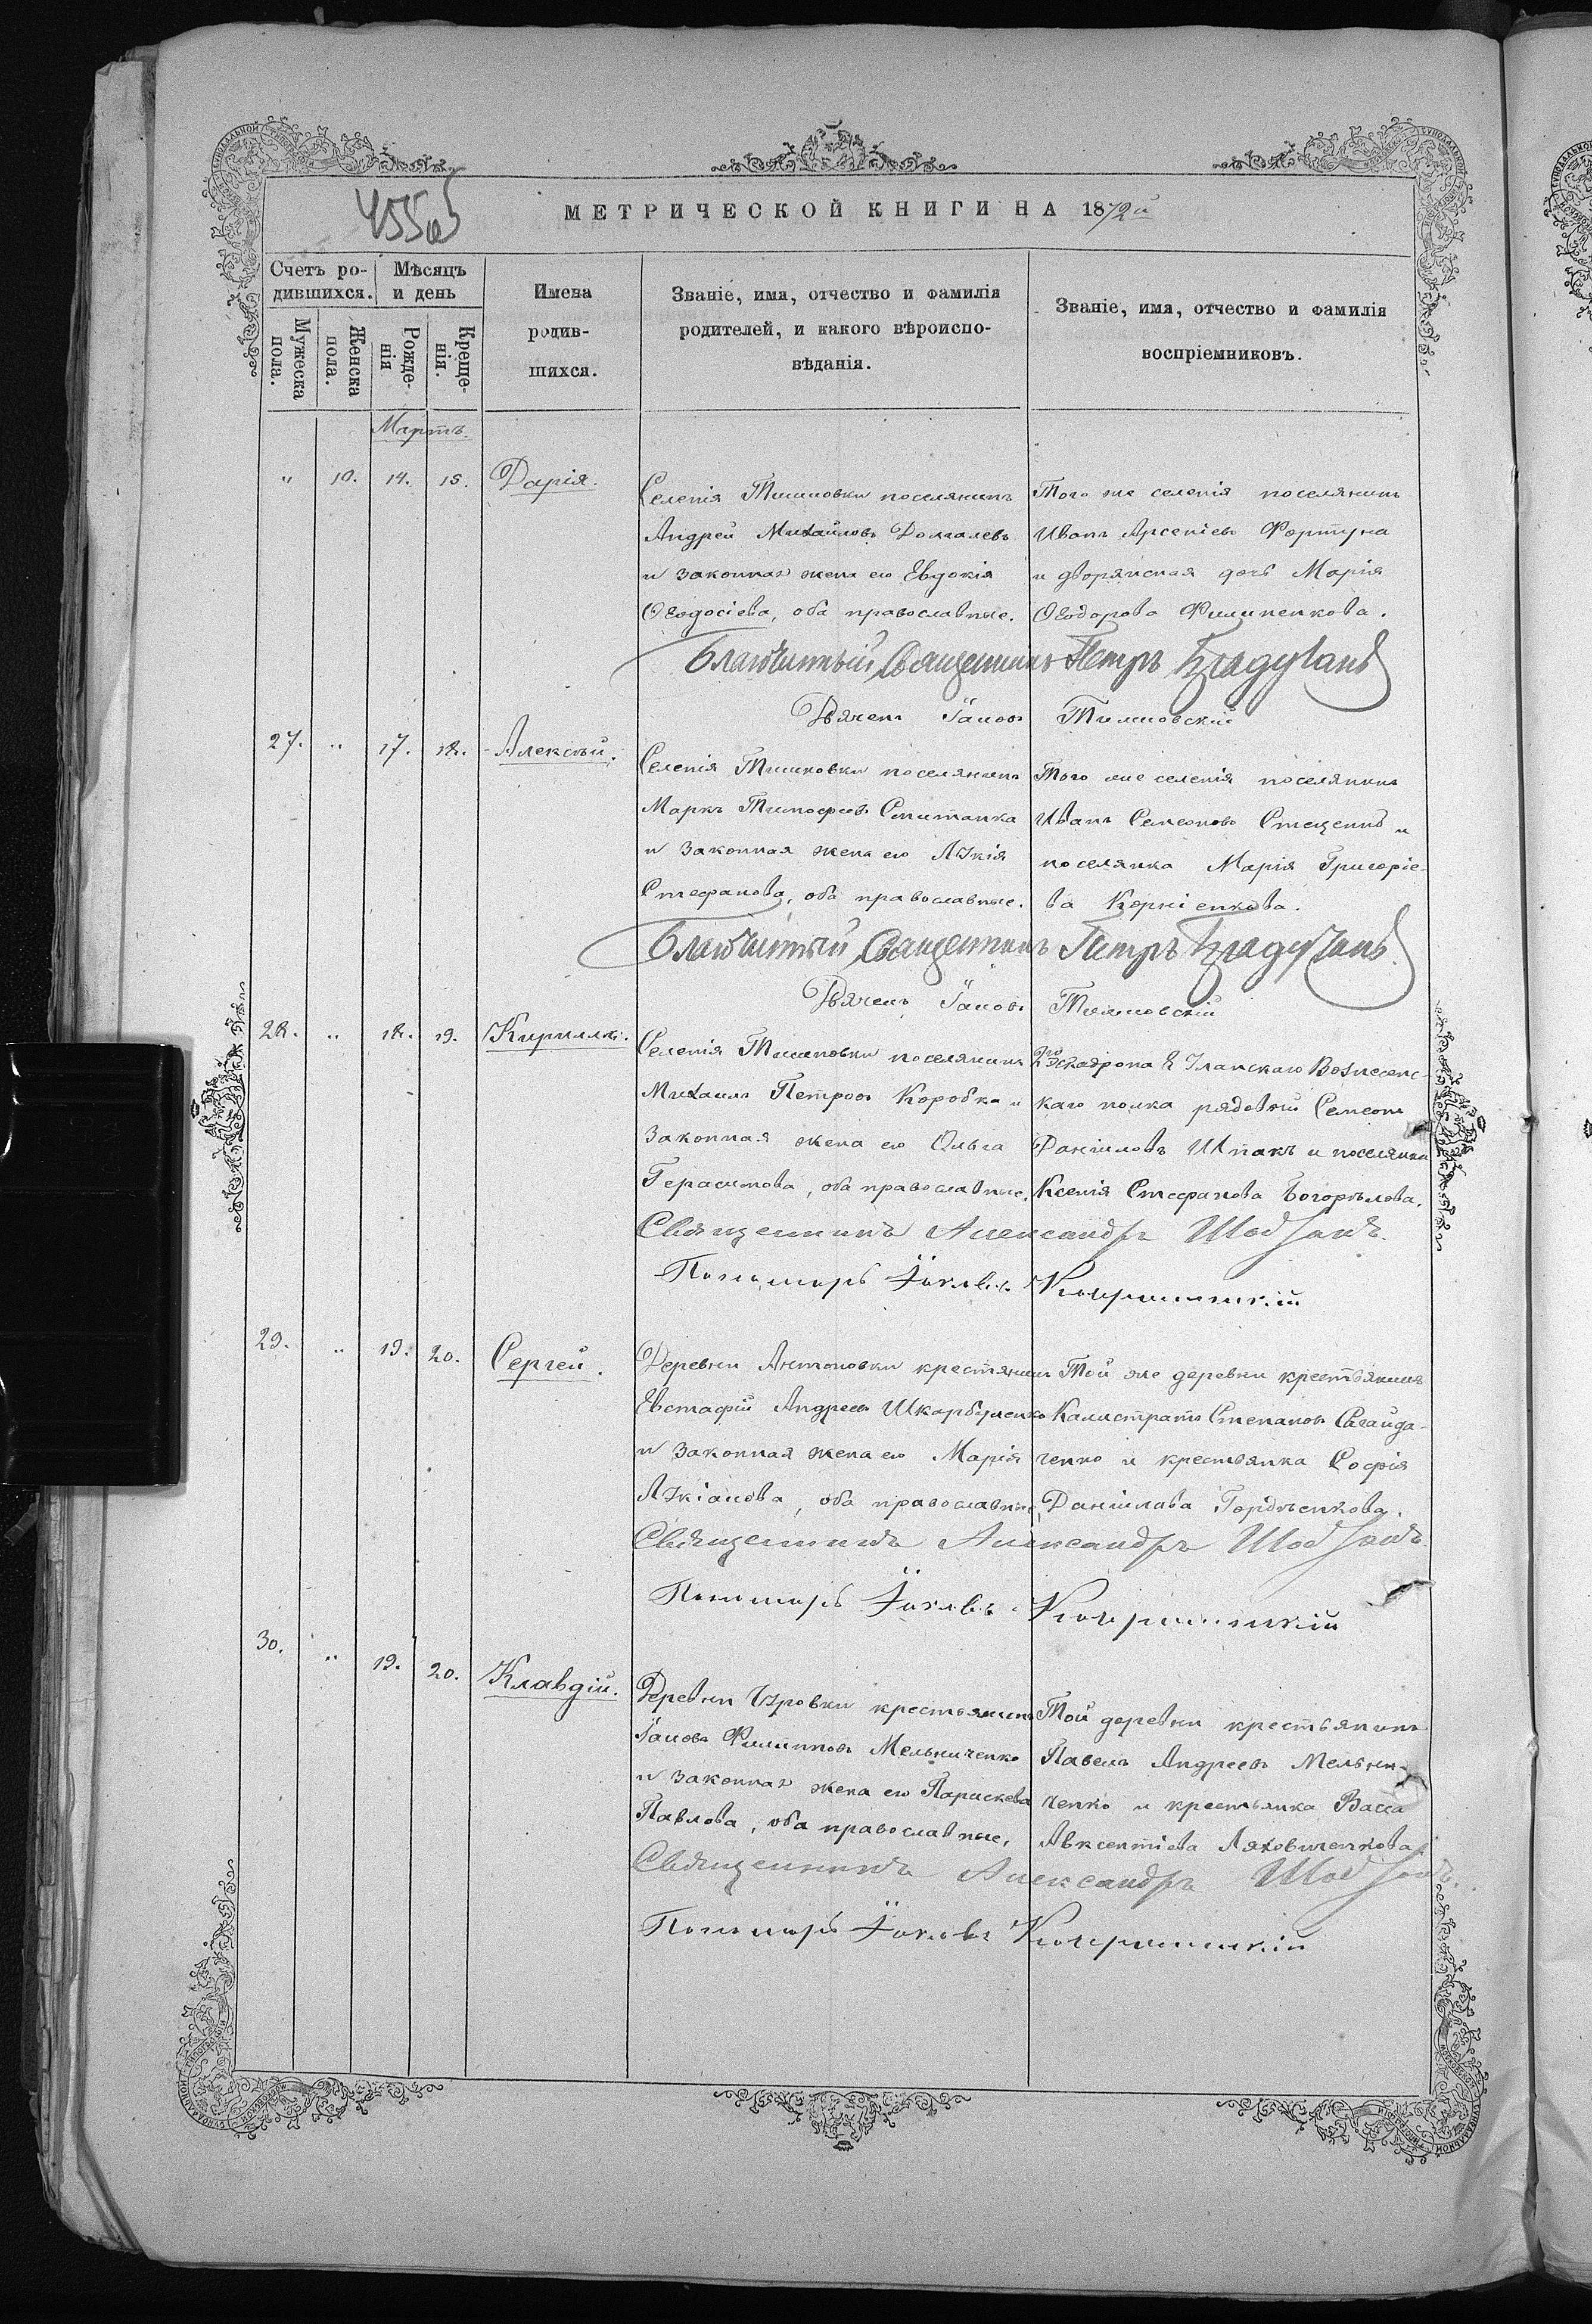 МЕТРИЧЕСКОЙ КНИГИ НА 1872й
Счетъ ро-
дившихся.
Мѣсяцъ
и день
Имена
родив-
шихся.
Званіе, имя, отчество и фамилія
родителей, и какого вѣроиспо-
вѣданія.
Званіе, имя, отчество и фамилія
воспріемниковъ.
Мужеска
пола.
Женска
пола.
Рожде-
нія
Креще-
нія.
Мартъ.
" 10. 14. 15. Дарія.
Селенія Тишковки поселянинъ
Андрей Михайловъ Долгалевъ
и законная жена его Евдокія
Ѳеодосіева, оба православные.
Того же селенія поселянинъ
Иванъ Арсеніевъ Фортуна
и дворянская дочь Марія
Ѳеодорова Филипенкова.
Благочинный Священникъ Петръ
Дьячекъ Іаковъ
27. " 17. 18. Алексѣй.
Селенія Тишковки поселянинъ
Маркъ Тимофеевъ Смитанка
и законная жена его Лукія
Стефанова, оба православные.
Того же селенія поселянинъ
Иванъ Семеоновъ Стеценко и
поселянка Марія Григоріе-
ва Корніенкова.
Благочинный Священникъ Петръ
Дьячекъ Іаковъ
28. " 18. 19. Кириллъ.
Селенія Тишковки поселянинъ
Михаилъ Петровъ Коробка и
законная жена его Ольга
Герасимова, оба православные.
2го эскадрона 8 Уланскаго Вознесенс-
каго полка рядовый Семеонъ
Даніиловъ Шпакъ и поселянка
Ксенія Стефанова Богорѣлова.
Священникъ Александръ
Пономарь Іаковъ
29. " 19. 20. Сергей.
Деревни Антоновки крестянинъ
Евстафій Андреевъ Шкарбуленко
и законная жена его Марія
Лукіанова, оба православные,
Той же деревни крестьянинъ
Калистратъ Степановъ Сагайда-
ченко и крестьянка Софія
Даніилова Гордѣенкова.
Священникъ Александръ
Пономарь Іаковъ
30. " 19. 20. Клавдій.
Деревни крестьянинъ
Іаковъ Филипповъ Мельниченко
и законная жена его Параскева
Павлова, оба православные,
Той деревни крестьянинъ
Павелъ Андреевъ Мельни-
ченко и крестьянка Васса
Авксентіева Ляховиченкова.
Священникъ Александръ
Пономарь Іаковъ